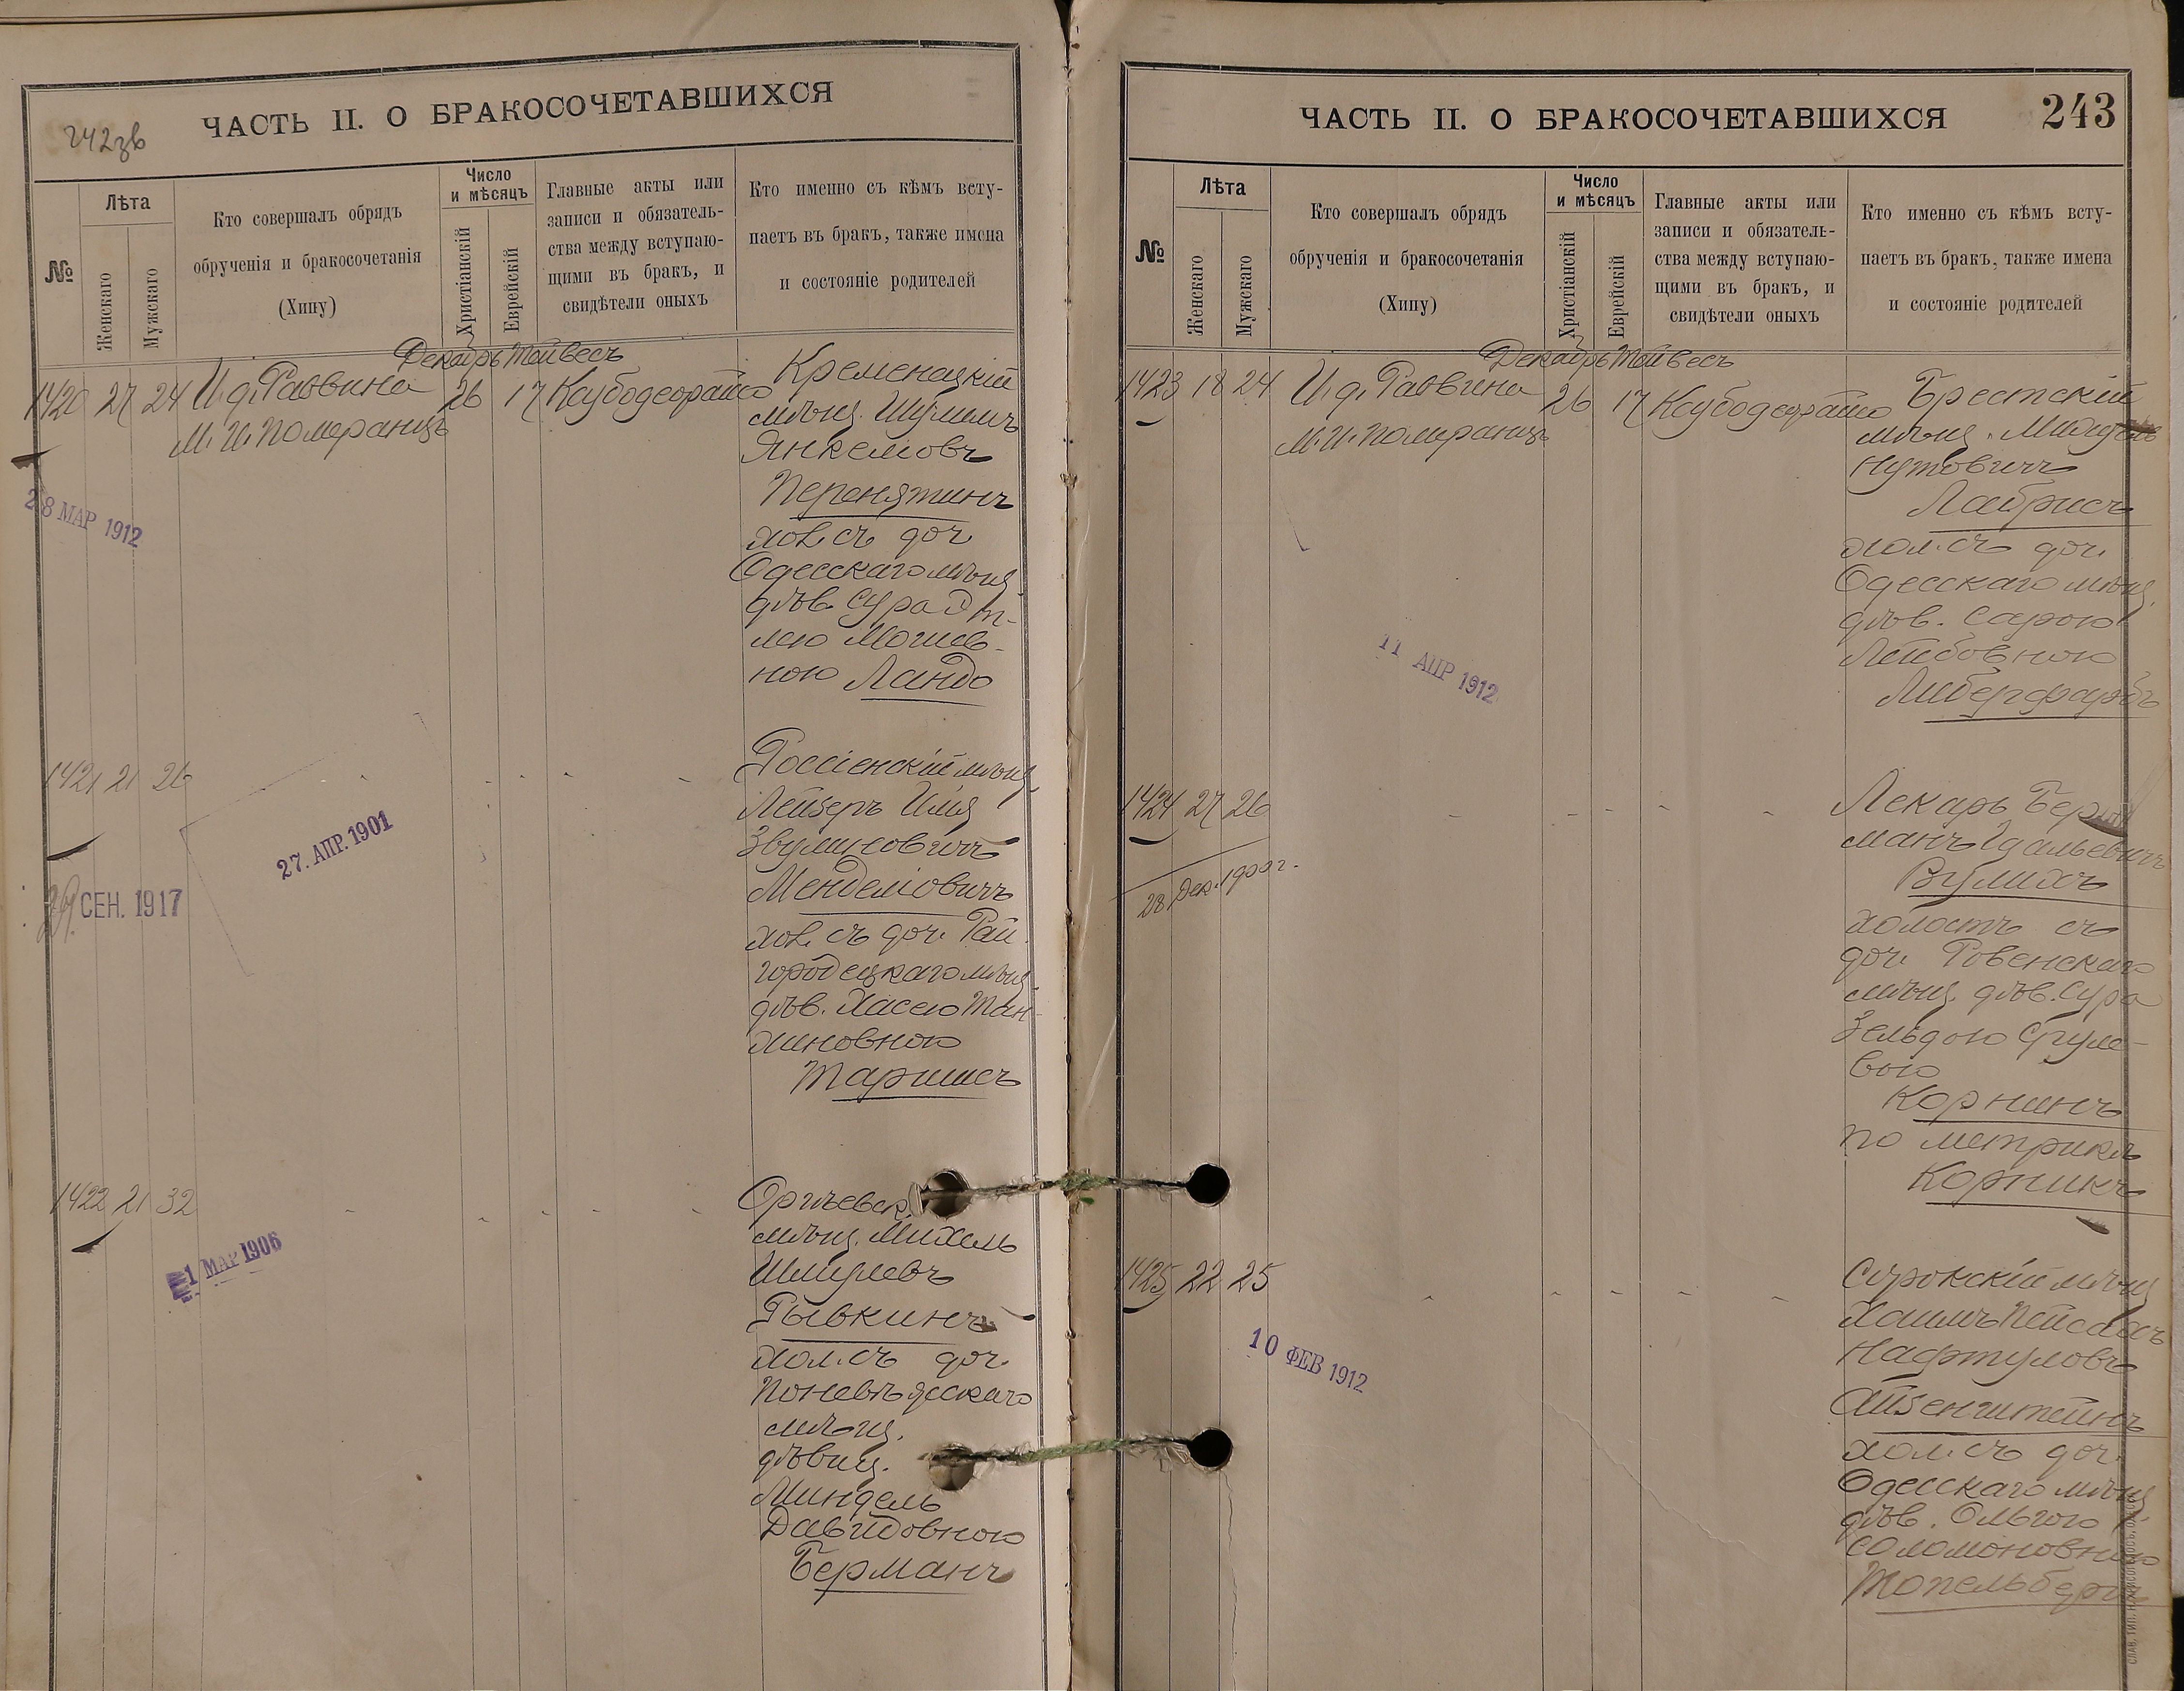 242 зв
ЧАСТЬ II. О БРАКОСОЧЕТАВШИХСЯ
№
Лѣта
Женскаго
Мужскаго
Кто совершалъ обрядъ
обрученія и бракосочетанія
(Хипу)
Число
и мѣсяцъ
Христіанскій
Еврейскій
Главные акты или
записи и обязатель-
ства между вступаю-
щими въ бракъ, и
свидѣтели оныхъ
Кто именно съ кѣмъ всту-
паетъ въ бракъ, также имена
и состояніе родителей
Декабрь Тейвесъ
1420 27 24 И. д. Раввина 26 17
М. И. Померанцъ
28 МАР 1912
Кременецкій
мѣщ. Шулимъ
Янкелiовъ
Перенятинъ
хол. съ доч.
Одесскаго мѣщ.
дѣв. Сура
лею Мошков-
ною Ландо
1421 21 26
27. АПР. 1901
СЕН. 1917
Россіенскій мѣщ.
Лейзеръ
Звулуновичъ
Менделiовичъ
хол. съ доч. Рай-
городецкаго мѣщ.
дѣв. Хасею Тан-
хиновною
Таршисъ
1422 21 32
1 МАР 1906
мѣщ. Михель
Шмулевъ
Рывкинъ
хол. съ доч.
Поневѣжскаго
мѣщ.
дѣвиц.
Миндель
Давидовною
Берманъ
ЧАСТЬ II. О БРАКОСОЧЕТАВШИХСЯ
243
№
Лѣта
Женскаго
Мужскаго
Кто совершалъ обрядъ
обрученія и бракосочетанія
(Хипу)
Число
и мѣсяцъ
Христіанскій
Еврейскій
Главные акты или
записи и обязатель-
ства между вступаю-
щими въ бракъ, и
свидѣтели оныхъ
Кто именно съ кѣмъ всту-
паетъ въ бракъ, также имена
и состояніе родителей
Декабрь Тейвесъ
1423 18 24 И. д. Раввина 26 17
М. И. Померанцъ
11 АПР 1912
Брестскій
мѣщ.
Нутовичъ
Лабрисъ
хол. съ доч.
Одесскаго мѣщ.
дѣв. Сарою
Лейбовною
Либерфарбъ
1424 27 26
28 Дек. 1900 г.
Лекарь Бер
манъ Идальевичъ
Вулихъ
холостъ съ
доч. Ровенскаго
мѣщ. дѣв. Сура
Зельдою Сруле-
вою
Корнинъ
по метрикѣ
Корникъ
1425 22 25
10 ФЕВ 1912
Сорокскій мѣщ.
Хаимъ Пейсахъ
Нафтуловъ
Айзенштейнъ
хол. съ доч.
Одесскаго мѣщ.
дѣв. Ольгою
Соломоновною
Топельбергъ